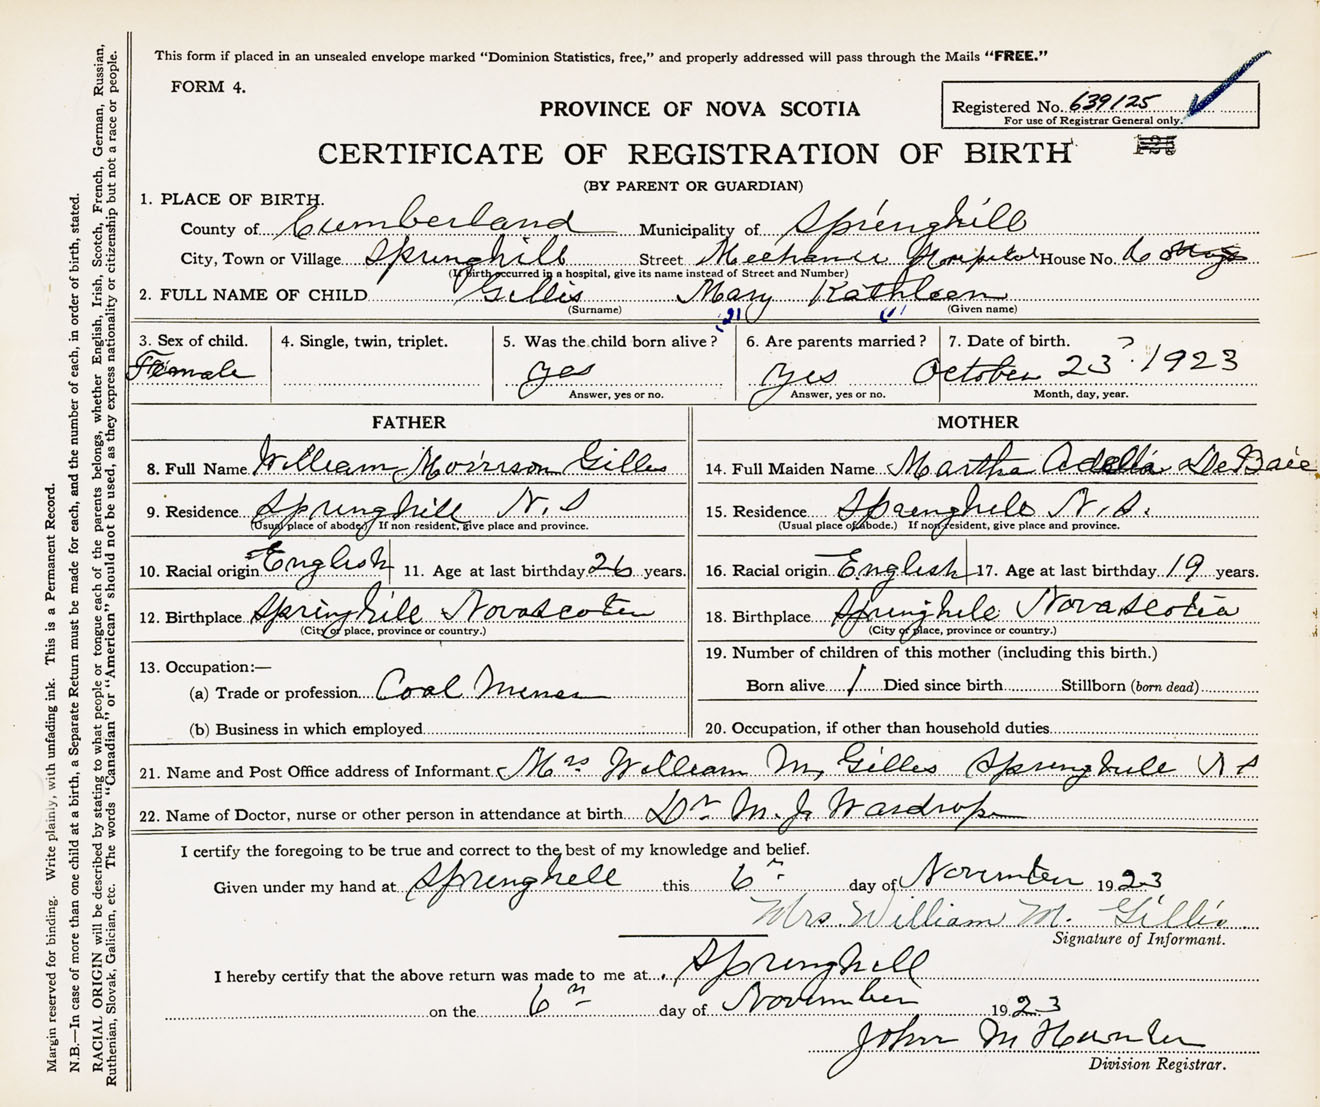 This form if placed in an unsealed envelope marked "Dominion Statistics, free," and properly addressed will pass through the Mails "FREE."
FORM 4.
PROVINCE OF NOVA SCOTIA
Registered No. 639125
For use of Registrar General only.
CERTIFICATE OF REGISTRATION OF BIRTH
(BY PARENT OR GUARDIAN)
1. PLACE OF BIRTH.
County of Cumberland Municipality of Springhill
City, Town or Village Springhill Street Hospital House No.
(If birth occurred in a hospital, give its name instead of Street and Number)
2. FULL NAME OF CHILD Gillis Mary Kathleen
(Surname) (Given name)
21
3. Sex of child. 4. Single, twin, triplet. 5. Was the child born alive? 6. Are parents married? 7. Date of birth.
Female yes yes October 23 ? 1923
Answer, yes or no. Answer, yes or no. Month, day, year.
FATHER MOTHER
8. Full Name William Morrison Gilles 14. Full Maiden Name Martha Adella DeBaie
9. Residence Springhill N.S 15. Residence Springhill N.S.
(Usual place of abode.) If non resident, give place and province. (Usual place of abode.) If non-resident, give place and province.
10. Racial origin English 11. Age at last birthday 26 years. 16. Racial origin English 17. Age at last birthday 19 years.
12. Birthplace Springhill Nova Scotia 18. Birthplace Springhill Nova Scotia
(City or place, province or country.) (City or place, province or country.)
13. Occupation:— 19. Number of children of this mother (including this birth.)
(a) Trade or profession Coal Miner Born alive 1 Died since birth Stillborn (born dead)
(b) Business in which employed 20. Occupation, if other than household duties
21. Name and Post Office address of Informant Mrs William M, Gilles Springhill N S
22. Name of Doctor, nurse or other person in attendance at birth Dr M. J. Wardrope
I certify the foregoing to be true and correct to the best of my knowledge and belief.
Given under my hand at Springhill this 6th day of November 1923
Mrs William M. Gillis
Signature of Informant.
I hereby certify that the above return was made to me at Springhill
on the 6th day of November 1923
John M Hunter
Division Registrar.
Margin reserved for binding. Write plainly, with unfading ink. This is a Permanent Record.
N.B.—In case of more than one child at a birth, a Separate Return must be made for each, and the number of each, in order of birth, stated.
RACIAL ORIGIN will be described by stating to what people or tongue each of the parents belongs, whether English, Irish, Scotch, French, German, Russian,
Ruthenian, Slovak, Galician, etc. The words "Canadian" or "American" should not be used, as they express nationality or citizenship but not a race or people.